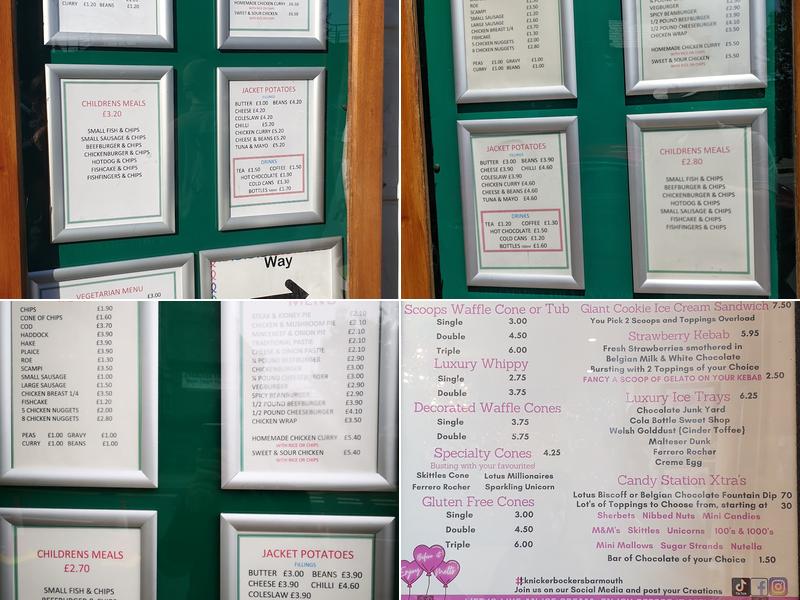 CURRY £1.20 BEANS £1.20
HOMEMADE CHICKEN CURRY
WITH RICE OR CHIPS
SWEET & SOUR CHICKEN
WITH RICE OR CHIPS
CHILDRENS MEALS
£3.20
SMALL FISH & CHIPS
SMALL SAUSAGE & CHIPS
BEEFBURGER & CHIPS
CHICKENBURGER & CHIPS
HOTDOG & CHIPS
FISHCAKE & CHIPS
FISHFINGERS & CHIPS
JACKET POTATOES
FILLINGS
BUTTER £3.00 BEANS £4.20
CHEESE £4.20
COLESLAW £4.20
CHILLI £5.20
CHICKEN CURRY £5.20
CHEESE & BEANS £5.20
TUNA & MAYO £5.20
DRINKS
TEA £1.50 COFFEE £1.50
HOT CHOCOLATE £1.90
COLD CANS £1.30
BOTTLES 500ml £1.70
VEGETARIAN MENU
£3.00
Way
ROE
SCAMPI £3.50
SMALL SAUSAGE £1.10
LARGE SAUSAGE £1.60
CHICKEN BREAST 1/4 £3.70
FISHCAKE £1.30
5 CHICKEN NUGGETS £2.00
8 CHICKEN NUGGETS £2.80
PEAS £1.00 GRAVY £1.00
CURRY £1.00 BEANS £1.00
VEGBURGER £2.90
SPICY BEANBURGER £2.90
1/2 POUND BEEFBURGER £3.90
1/2 POUND CHEESEBURGER £4.10
CHICKEN WRAP £3.50
HOMEMADE CHICKEN CURRY £5.50
WITH RICE OR CHIPS
SWEET & SOUR CHICKEN £5.50
WITH RICE OR CHIPS
JACKET POTATOES
FILLINGS
BUTTER £3.00 BEANS £3.90
CHEESE £3.90 CHILLI £4.60
COLESLAW £3.90
CHICKEN CURRY £4.60
CHEESE & BEANS £4.60
TUNA & MAYO £4.60
DRINKS
TEA £1.20 COFFEE £1.30
HOT CHOCOLATE £1.50
COLD CANS £1.20
BOTTLES 500ml £1.60
CHILDRENS MEALS
£2.80
SMALL FISH & CHIPS
BEEFBURGER & CHIPS
CHICKENBURGER & CHIPS
HOTDOG & CHIPS
SMALL SAUSAGE & CHIPS
FISHCAKE & CHIPS
FISHFINGERS & CHIPS
CHIPS £1.90
CONE OF CHIPS £1.60
COD £3.70
HADDOCK £3.90
HAKE £3.90
PLAICE £3.90
ROE £1.30
SCAMPI £3.50
SMALL SAUSAGE £1.00
LARGE SAUSAGE £1.50
CHICKEN BREAST 1/4 £3.50
FISHCAKE £1.20
5 CHICKEN NUGGETS £2.00
8 CHICKEN NUGGETS £2.80
PEAS £1.00 GRAVY £1.00
CURRY £1.00 BEANS £1.00
MENU
STEAK & KIDNEY PIE £2.10
CHICKEN & MUSHROOM PIE £2.10
MINCEMEAT & ONION PIE £2.10
TRADITIONAL PASTIE £2.10
CHEESE & ONION PASTIE £2.10
¼ POUND BEEFBURGER £2.90
¼ POUND CHEESEBURGER £3.00
CHICKENBURGER £3.00
VEGBURGER £2.90
SPICY BEANBURGER £2.90
1/2 POUND BEEFBURGER £3.90
1/2 POUND CHEESEBURGER £4.10
CHICKEN WRAP £3.50
HOMEMADE CHICKEN CURRY £5.40
WITH RICE OR CHIPS
SWEET & SOUR CHICKEN £5.40
WITH RICE OR CHIPS
CHILDRENS MEALS
£2.70
SMALL FISH & CHIPS
JACKET POTATOES
FILLINGS
BUTTER £3.00 BEANS £3.90
CHEESE £3.90 CHILLI £4.60
COLESLAW £3.90
Scoops Waffle Cone or Tub
Single 3.00
Double 4.50
Triple 6.00
Luxury Whippy
Single 2.75
Double 3.75
Decorated Waffle Cones
Single 3.75
Double 5.75
Specialty Cones 4.25
Busting with your favourited
Skittles Cone Lotus Millionaires
Ferrero Rocher Sparkling Unicorn
Gluten Free Cones
Single 3.00
Double 4.50
Triple 6.00
Enjoy Before it Melts
Giant Cookie Ice Cream Sandwich 7.50
You Pick 2 Scoops and Toppings Overload
Strawberry Kebab 5.95
Fresh Strawberries smothered in
Belgian Milk & White Chocolate
Bursting with 2 Toppings of your Choice
FANCY A SCOOP OF GELATO ON YOUR KEBAB 2.50
Luxury Ice Trays 6.25
Chocolate Junk Yard
Cola Bottle Sweet Shop
Welsh Golddust {Cinder Toffee}
Malteser Dunk
Ferrero Rocher
Creme Egg
Candy Station Xtra's
Lotus Biscoff or Belgian Chocolate Fountain Dip 70
Lot's of Toppings to Choose from, starting at 30
Sherbets Nibbed Nuts Mini Candies
M&M's Skittles Unicorns 100's & 1000's
Mini Mallows Sugar Strands Nutella
Bar of Chocolate of your Choice 1.50
#knickerbockersbarmouth
Join us on our Social Media and post your Creations